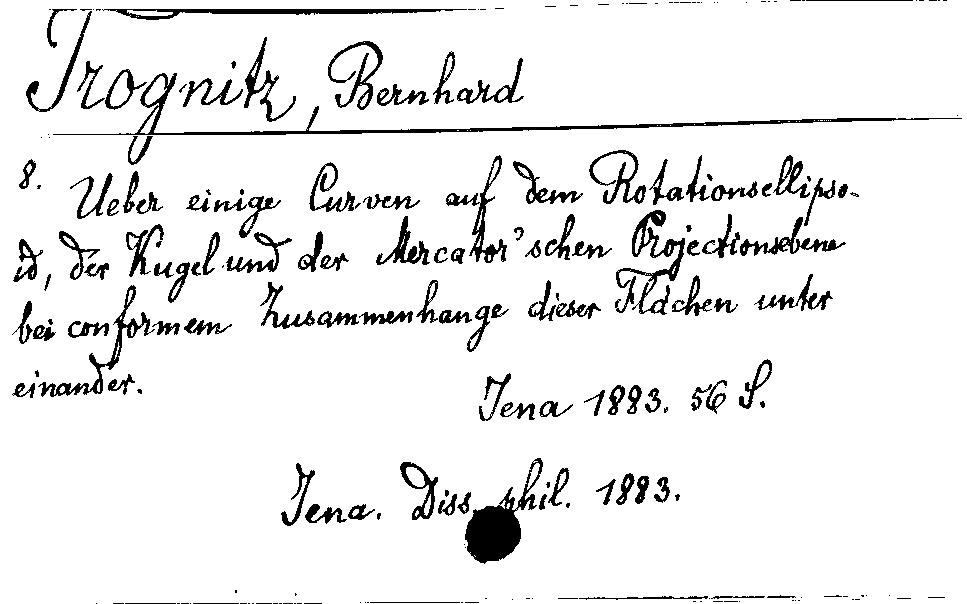 Trognitz, Bernhard
8.
Ueber einige Curven auf dem Rotationsellipso-
id, der Kugel und der Mercator'schen Projectionsebene
bei conformem Zusammenhange dieser Flächen unter
einander.
Jena 1883. 56 S.
Jena. Diss. phil. 1883.